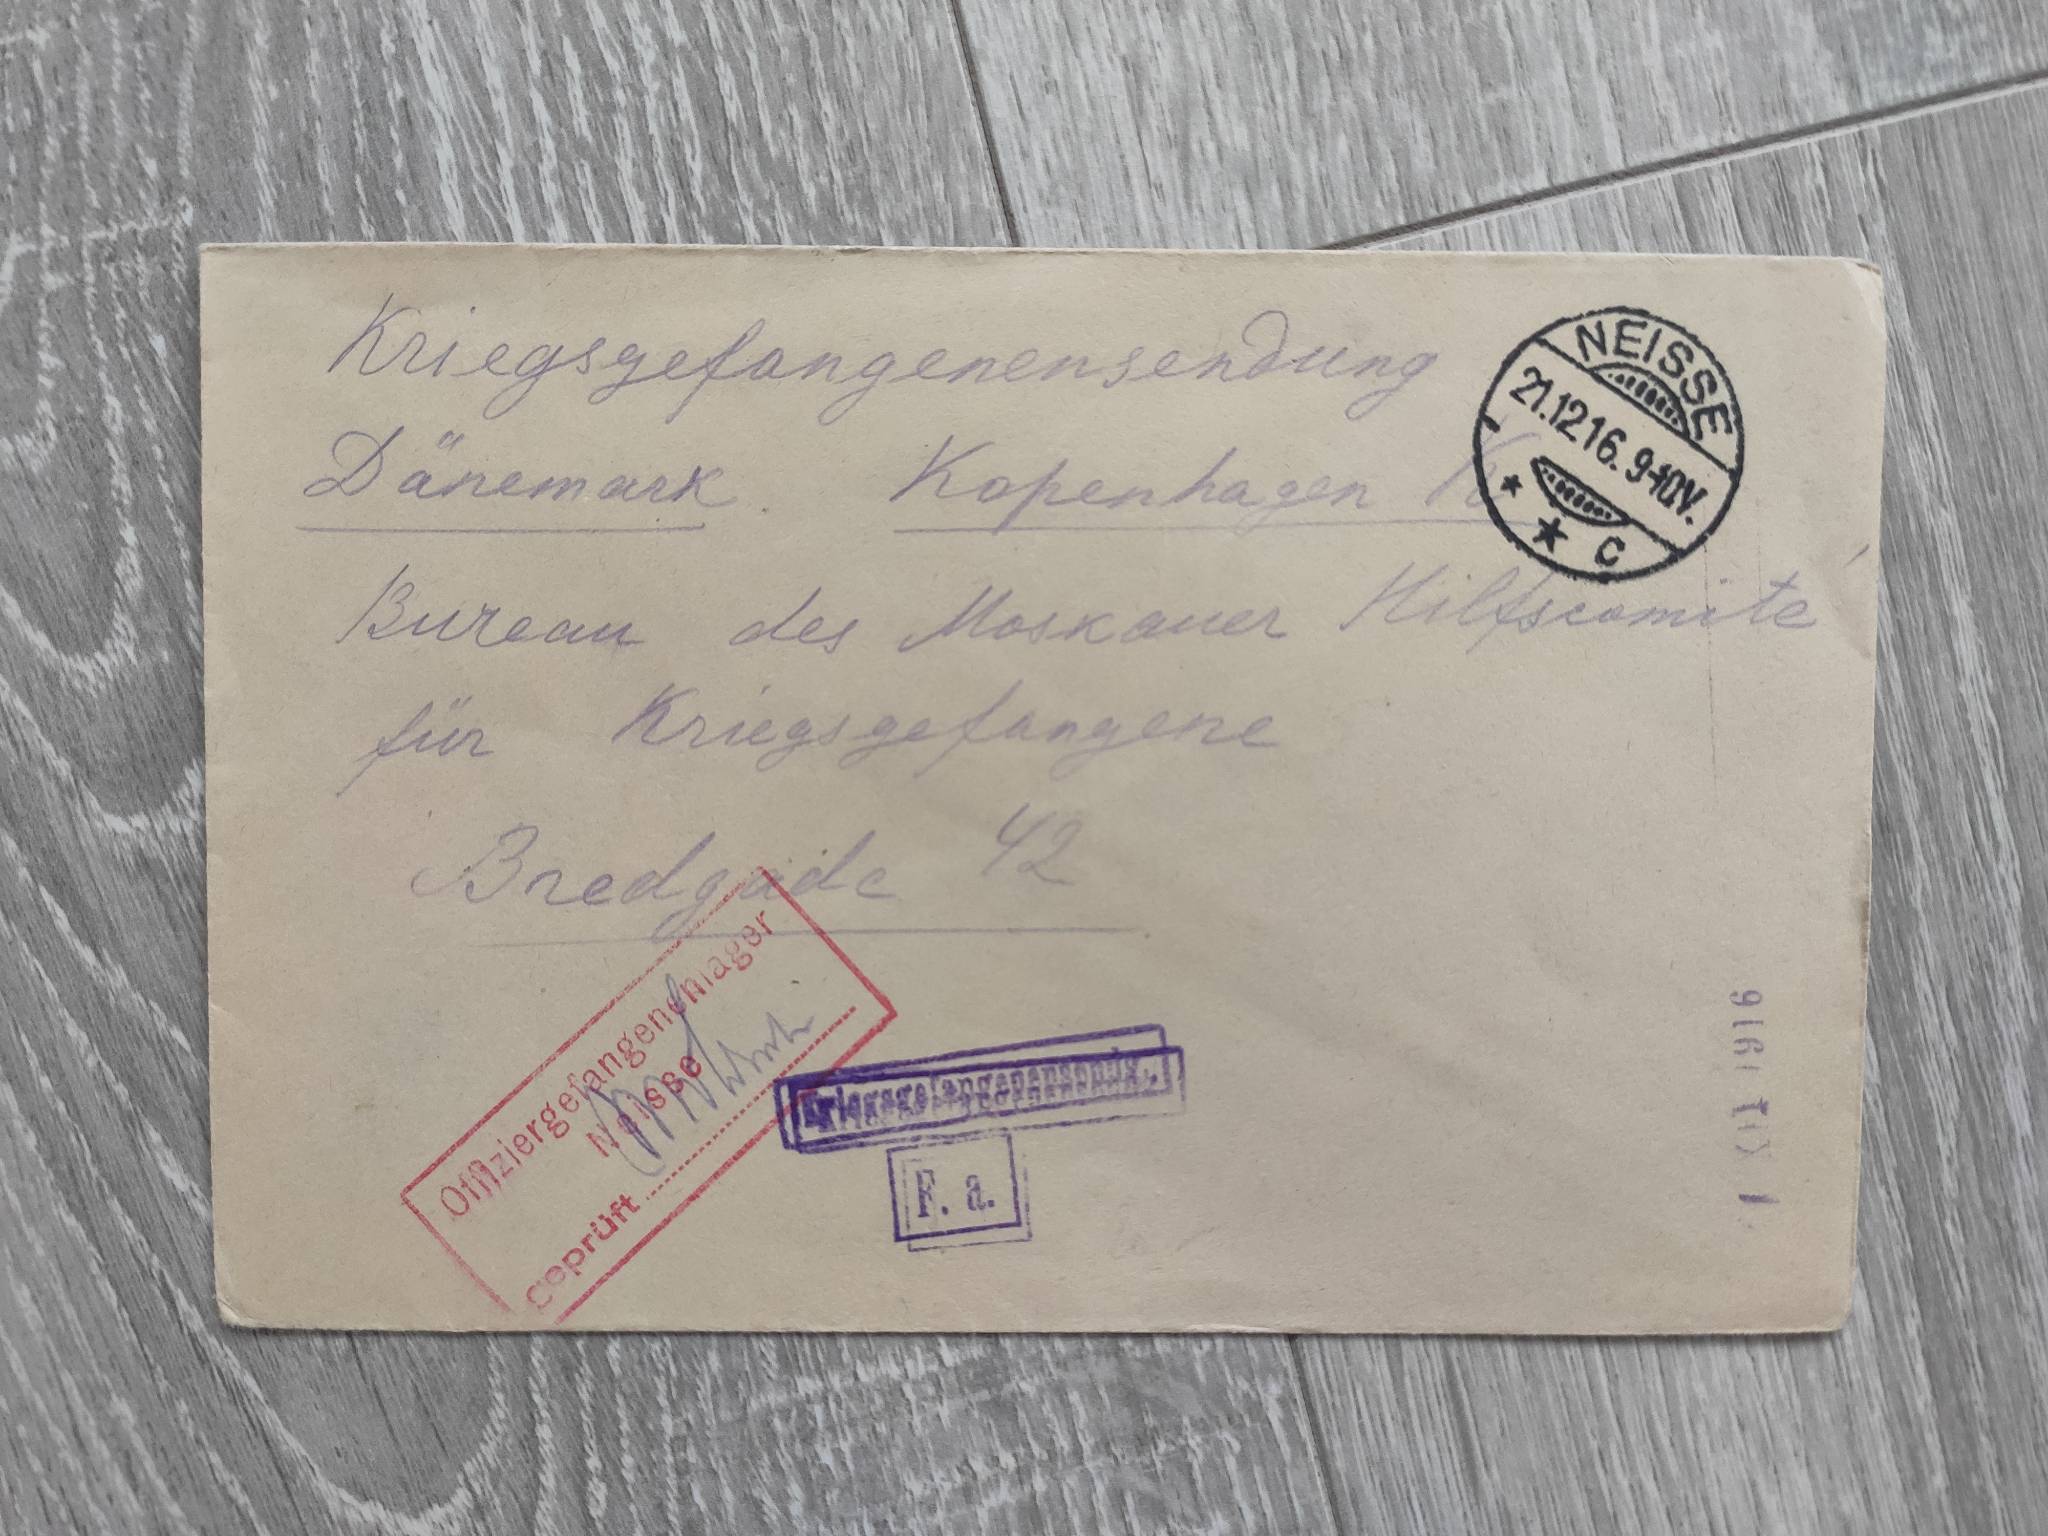 Kriegsgefangenensendung
Dänemark. Kopenhagen K
Bureau des Moskauer Hilfscomité
für Kriegsgefangene
Bredgade 42
NEISSE
21.12.16. 9-10V.
* * C
Offiziergefangenenlager
Neisse
Geprüft
Kriegsgefangenensendg.
F. a.
916